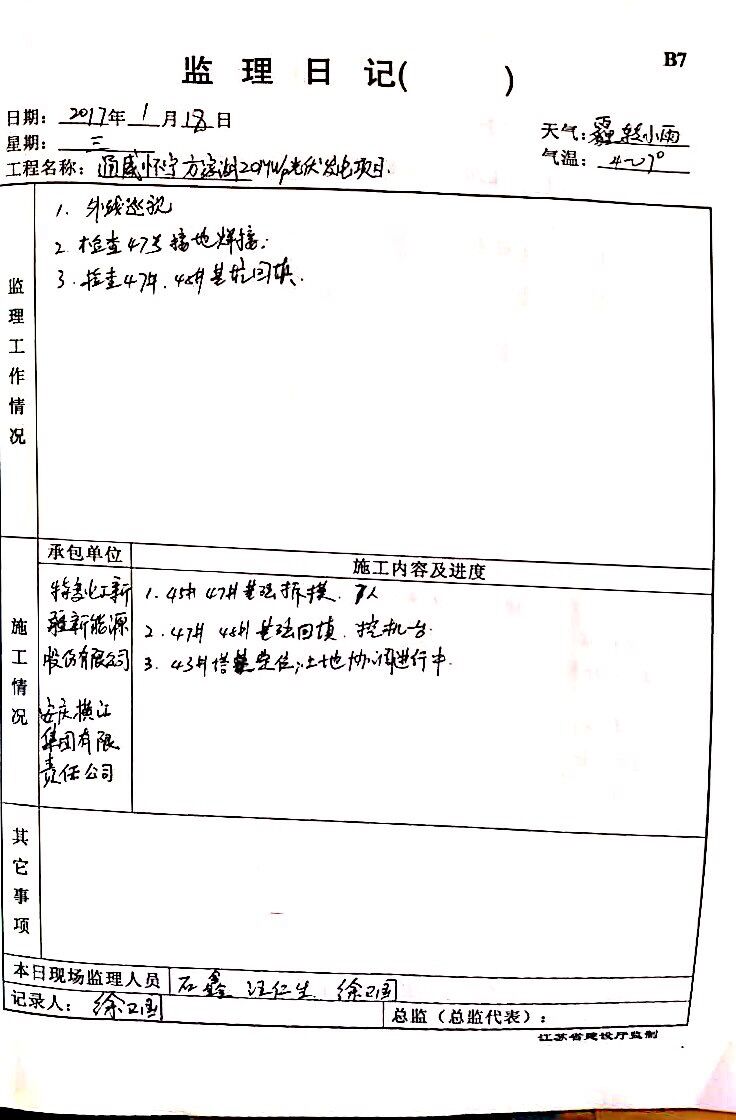 B7
监理日记( )
日期: 2017年 1 月 18 日
星期: 三
天气: 霾转小雨
气温: 4~7°
工程名称: 通威怀宁 20MWp光伏发电项目.
监理工作情况
1. 外线巡视
2. 检查47号接地焊接.
3. 检查47#、48#基坑回填.
施工情况
承包单位
施工内容及进度
特变电工新
疆新能源
股份有限公司
安庆横江
集团有限
责任公司
1. 45# 47#基础拆模. 7人
2. 47# 48#基础回填. 挖机 台.
3. 43#塔基定位,土地协调进行中.
其它事项
本日现场监理人员 石鑫 汪仁生 徐卫国
记录人: 徐卫国
总监(总监代表):
江苏省建设厅监制